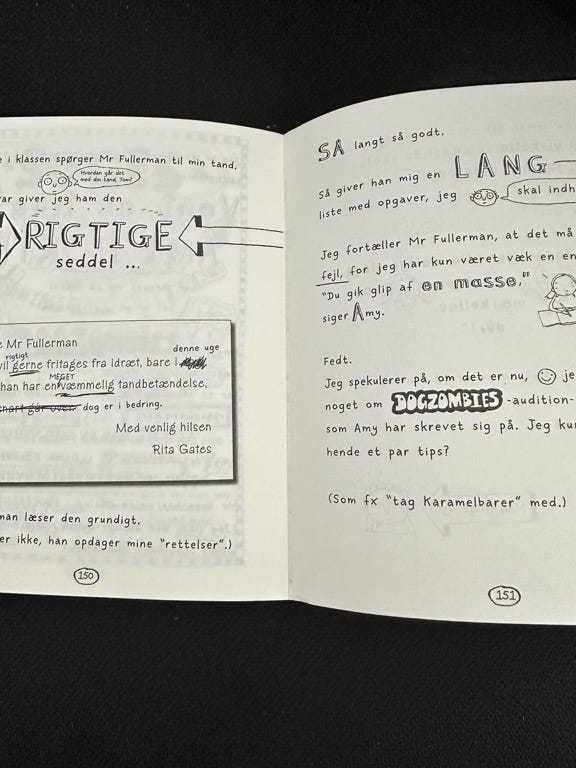 i klassen spørger Mr Fullerman til min tand.
Hvordan går det
med din tand, Tom?
giver jeg ham den
RIGTIGE
seddel ...
Mr Fullerman
denne uge
rigtigt
gerne fritages fra Idræt, bare i
MEGET
han har en væmmelig tandbetændelse,
snart går over. dog er i bedring.
Med venlig hilsen
Rita Gates
læser den grundigt.
ikke, han opdager mine "rettelser".)
150
SÅ langt så godt.
Så giver han mig en LANG
liste med opgaver, jeg skal
Jeg fortæller Mr Fullerman, at det må
fejl, for jeg har kun været væk en
"Du gik glip af en masse,"
siger Amy.
Fedt.
Jeg spekulerer på, om det er nu,
noget om DOGZOMBIES-audition-
som Amy har skrevet sig på. Jeg
hende et par tips?
(Som fx "tag Karamelbarer" med.)
151